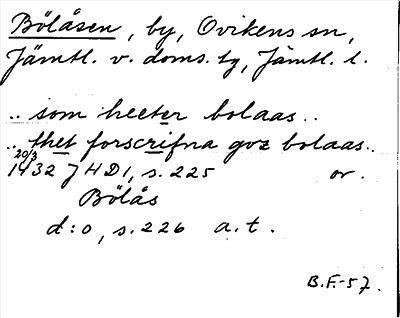 Bölåsen, by, Ovikens sn,
Jämtl. v. doms. tg, Jämtl. l.
.. som heeter bolaas..
.. thet forscrifna goz bolaas..
20/3
1432 JHD1, s. 225 or.
Bölås
d:o, s. 226 a.t.
B.F.-57.